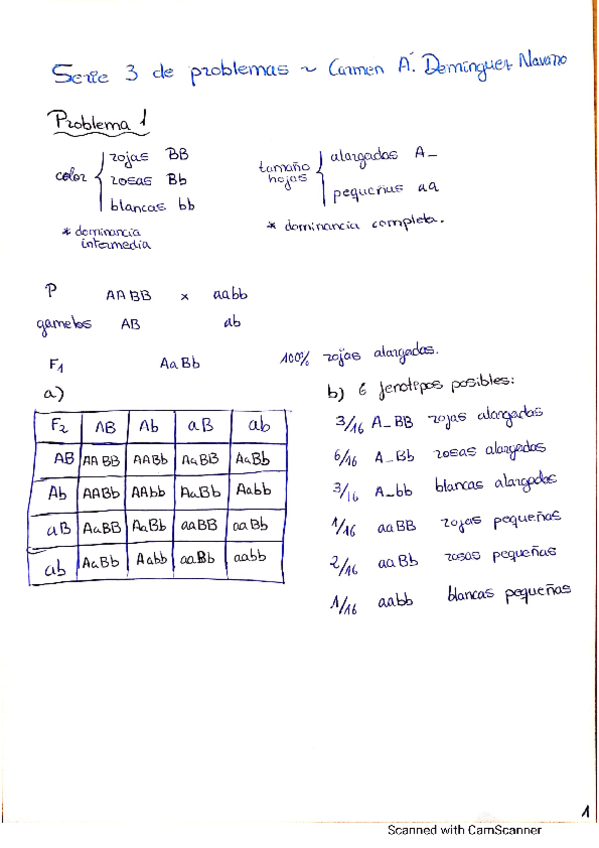 Serie 3 de problemas ~ Carmen Á. Domínguez Navarro
Problema 1
color
rojas BB
rosas Bb
blancas bb
* dominancia
intermedia
tamaño
hojas
alargadas A_
pequeñas aa
* dominancia completa.
P AABB x aabb
gametos AB ab
F1 AaBb 100% rojas alargadas.
a)
F2 AB Ab aB ab
AB AABB AABb AaBB AaBb
Ab AABb AAbb AaBb Aabb
aB AaBB AaBb aaBB aaBb
ab AaBb Aabb aaBb aabb
b) 6 fenotipos posibles:
3/16 A_BB rojas alargadas
6/16 A_Bb rosas alargadas
3/16 A_bb blancas alargadas
1/16 aaBB rojas pequeñas
2/16 aaBb rosas pequeñas
1/16 aabb blancas pequeñas
1
Scanned with CamScanner